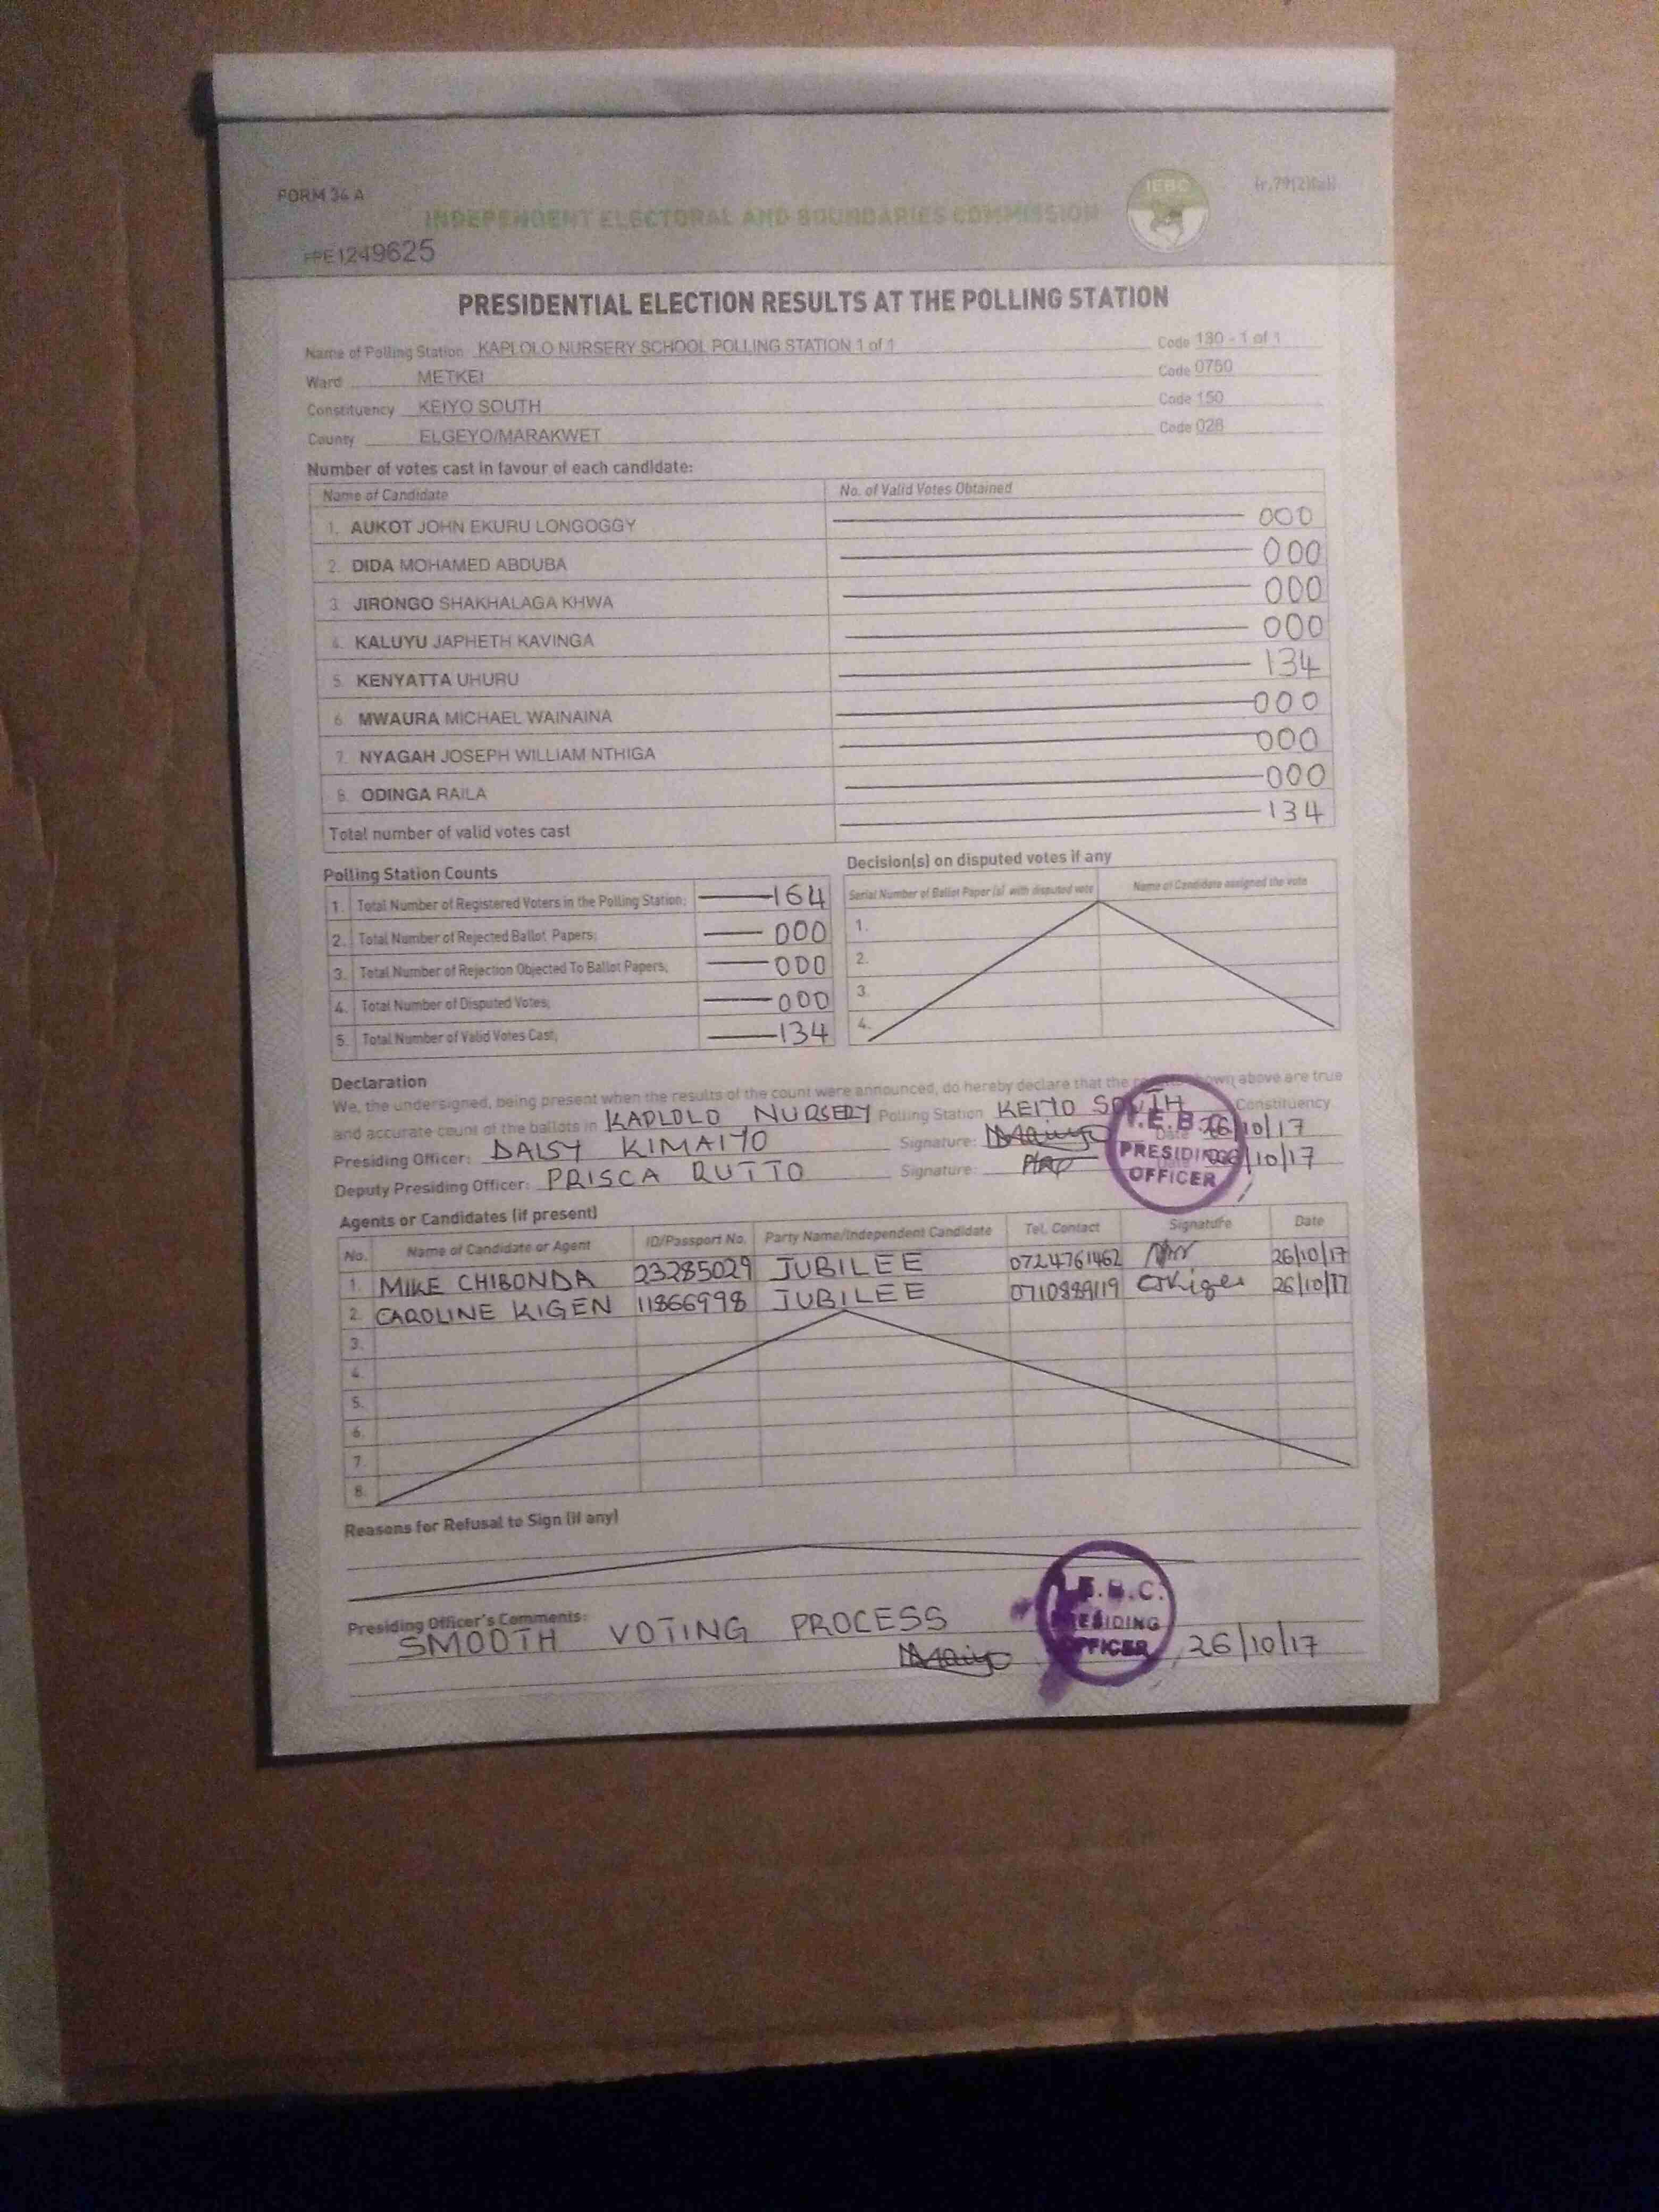 FORM 34 A
(r.79(2)(a))
INDEPENDENT ELECTORAL AND BOUNDARIES COMMISSION
IEBC
1249625
PRESIDENTIAL ELECTION RESULTS AT THE POLLING STATION
Name of Polling Station KAPLOLO NURSERY SCHOOL POLLING STATION 1 of 1 Code 130 - 1 of 1
Ward METKEI Code 0750
Constituency KEIYO SOUTH Code 150
County ELGEYO/MARAKWET Code 028
Number of votes cast in favour of each candidate:
Name of Candidate No. of Valid Votes Obtained
1. AUKOT JOHN EKURU LONGOGGY 000
2. DIDA MOHAMED ABDUBA 000
3. JIRONGO SHAKHALAGA KHWA 000
4. KALUYU JAPHETH KAVINGA 000
5. KENYATTA UHURU 134
6. MWAURA MICHAEL WAINAINA 000
7. NYAGAH JOSEPH WILLIAM NTHIGA 000
8. ODINGA RAILA 000
Total number of valid votes cast 134
Polling Station Counts
1. Total Number of Registered Voters in the Polling Station; 164
2. Total Number of Rejected Ballot Papers; 000
3. Total Number of Rejection Objected To Ballot Papers; 000
4. Total Number of Disputed Votes; 000
5. Total Number of Valid Votes Cast; 134
Decision(s) on disputed votes if any
Serial Number of Ballot Paper (s) with disputed vote Name of Candidate assigned the vote
1.
2.
3.
4.
Declaration
We, the undersigned, being present when the results of the count were announced, do hereby declare that the results shown above are true
and accurate count of the ballots in KAPLOLO NURSERY Polling Station KEIYO SOUTH Constituency
Presiding Officer: DAISY KIMAIYO Signature: Date 26/10/17
Deputy Presiding Officer: PRISCA RUTTO Signature: /10/17
I.E.B.C
PRESIDING
OFFICER
Agents or Candidates (if present)
No. Name of Candidate or Agent ID/Passport No. Party Name/Independent Candidate Tel. Contact Signature Date
1. MIKE CHIBONDA 23285029 JUBILEE 0724761462 26/10/17
2. CAROLINE KIGEN 11866998 JUBILEE 0710889119 26/10/17
3.
4.
5.
6.
7.
8.
Reasons for Refusal to Sign (if any)
Presiding Officer's Comments:
SMOOTH VOTING PROCESS
I.E.B.C.
PRESIDING
OFFICER
26/10/17